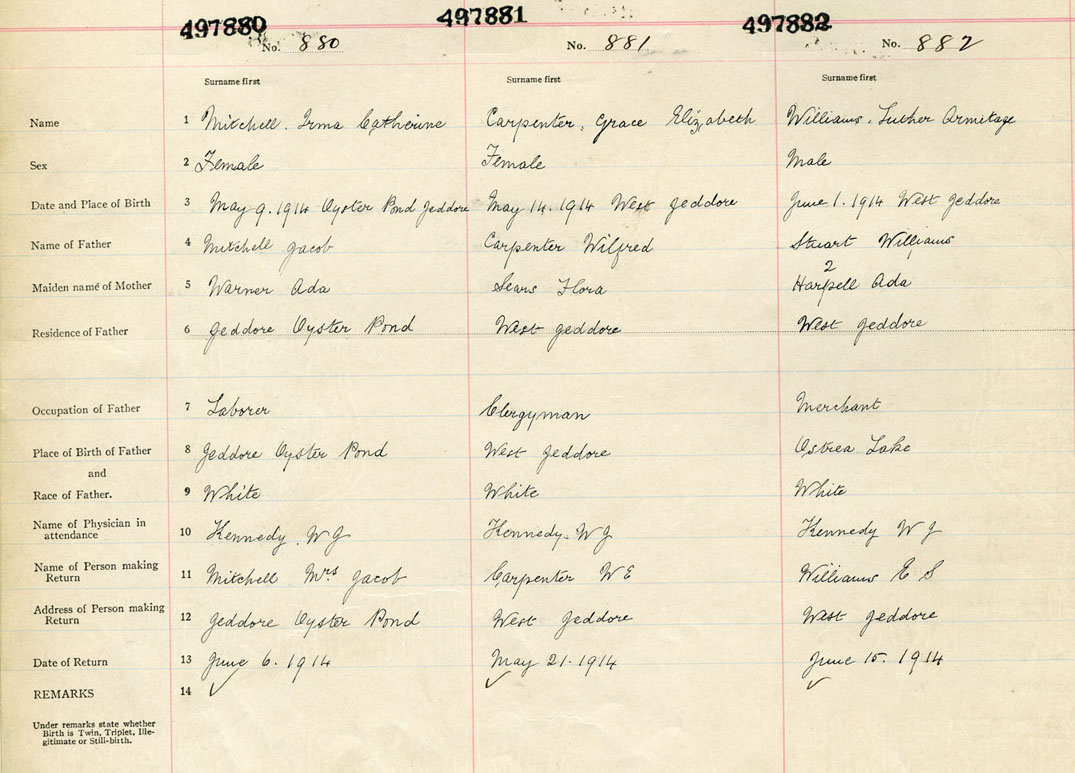 497880 497881 497882
No. 880 No. 881 No. 882
Surname first Surname first Surname first
Name 1 Mitchell. Irma Catherine Carpenter, Grace Elizabeth Williams. Luther Armitage
Sex 2 Female Female Male
Date and Place of Birth 3 May 9. 1914 Oyster Pond Jeddore May 14. 1914 West Jeddore June 1. 1914 West Jeddore
Name of Father 4 Mitchell Jacob Carpenter Wilfred Stuart Williams
2
Maiden name of Mother 5 Warner Ada Sears Flora Harpell Ada
Residence of Father 6 Jeddore Oyster Pond West Jeddore West Jeddore
Occupation of Father 7 Laborer Clergyman Merchant
Place of Birth of Father 8 Jeddore Oyster Pond West Jeddore Ostrea Lake
and
Race of Father. 9 White White White
Name of Physician in
attendance 10 Kennedy. W J Kennedy. W J Kennedy W J
Name of Person making
Return 11 Mitchell Mrs Jacob Carpenter W E Williams E S
Address of Person making
Return 12 Jeddore Oyster Pond West Jeddore West Jeddore
Date of Return 13 June 6. 1914 May 21. 1914 June 15. 1914
REMARKS 14 ✓ ✓ ✓
Under remarks state whether
Birth is Twin, Triplet, Ille-
gitimate or Still-birth.